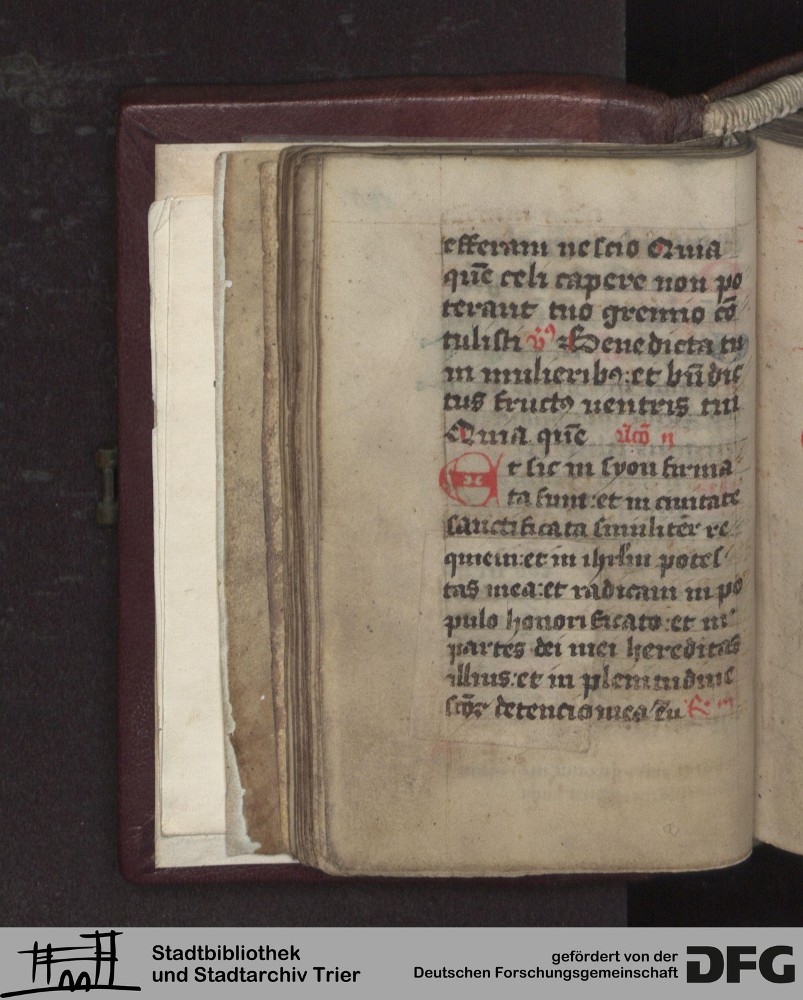 efferam nescio Quia
quē celi capere non po
terant tuo gremio cō
tulisti v̄ Benedicta tu
in mulieribꝯ: et bn̄dic
tus fructꝯ uentris tui
Quia quē lcō ii
Et sic in syon firma
ta sum: et in ciuitate
sanctificata similiter re
quieui: et in ihrlm potes
tas mea: et radicaui in po
pulo honorificato: et in
partes dei mei hereditas
illius: et in plenitudine
scōꝝ detencio mea Tu
Stadtbibliothek
und Stadtarchiv Trier
gefördert von der
Deutschen Forschungsgemeinschaft
DFG